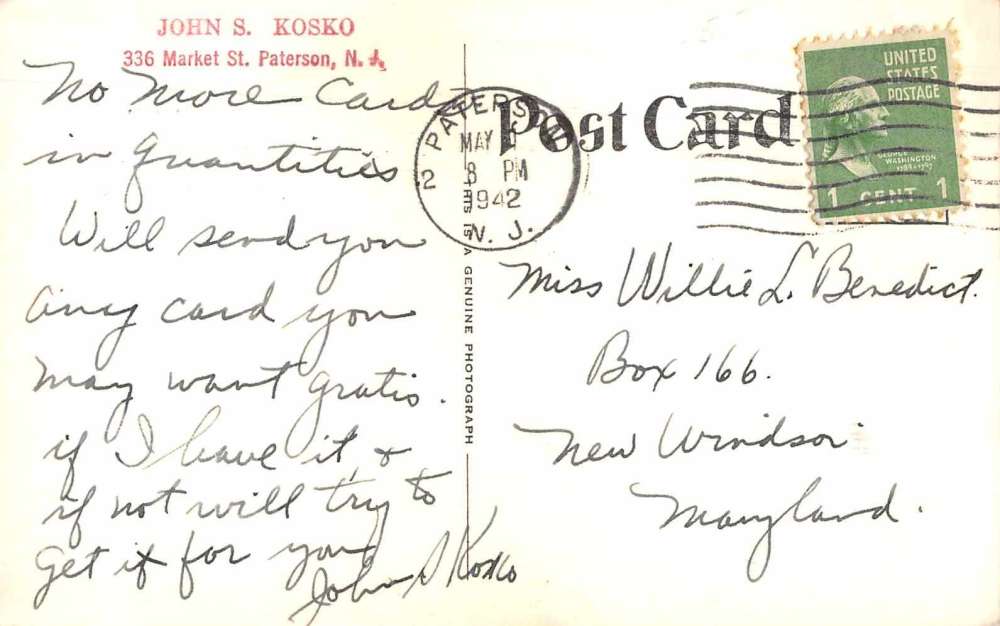 JOHN S. KOSKO
336 Market St. Paterson, N. J.
No More Cards
in quantities
Will send you
any card you
may want gratis.
if I have it, &
if not will try to
get it for you
John S Kosko
THIS IS A GENUINE PHOTOGRAPH
Post Card
PATERSON
MAY
2 8 PM
1942
N. J.
UNITED
STATES
POSTAGE
GEORGE
WASHINGTON
1789-1797
1 CENT 1
Miss Willie L. Benedict.
Box 166.
New Windsor
Maryland.